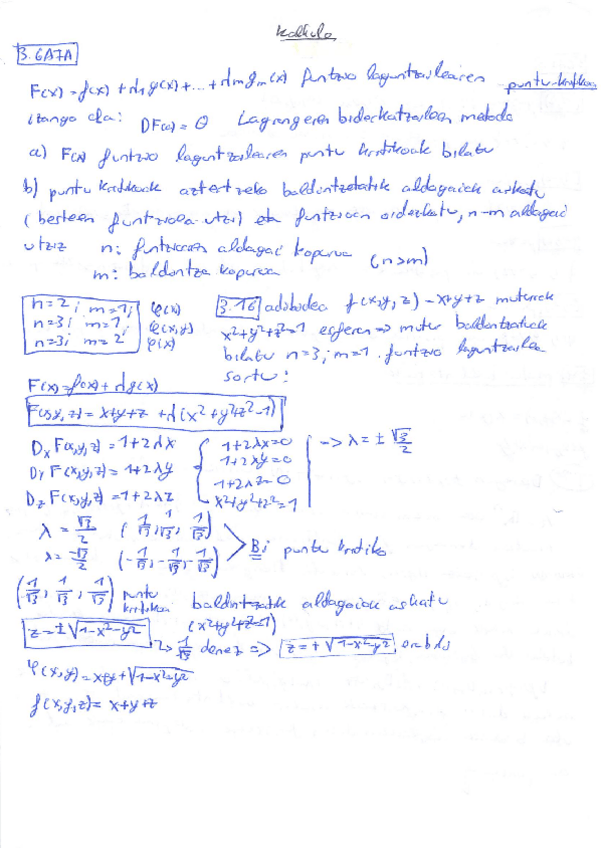 Kalkulo
3. GAIA
F(x) = f(x) + λ₁g(x) + ... + λₘgₘ(x) funtzio laguntzailearen puntu kritikoa
izango da: DF(a) = θ Lagrangeren biderkatzaileen metodo
a) F(x) funtzio laguntzailearen puntu kritikoak bilatu
b) puntu kritikoak aztertzeko baldintzetatik aldagaiak askatu
(besteen funtziola utzi) eta funtzioan ordezkatu, n-m aldagai
utziz n: funtzioaren aldagai kopurua (n>m)
m: baldintza kopurua
n=2; m=1; φ(x)
n=3; m=1; φ(x,y)
n=3; m=2 φ(x)
3.16 adibidea f(x,y,z) = x+y+z muturrak
x²+y²+z²=1 esferan => mutur baldintzatuak
bilatu n=3; m=1. funtzio laguntzailea
sortu:
F(x) = f(x) + λg(x)
F(x,y,z) = x+y+z + λ(x²+y²+z²-1)
DₓF(x,y,z) = 1+2λx
DᵧF(x,y,z) = 1+2λy
D_zF(x,y,z) = 1+2λz
1+2λx=0
1+2λy=0
1+2λz=0
x²+y²+z²=1
-> λ = ± √3/2
λ = √3/2 (1/√3, 1/√3, 1/√3)
λ = -√3/2 (-1/√3, -1/√3, -1/√3)
Bi puntu kritiko
(1/√3, 1/√3, 1/√3) puntu kritikoa baldintzatik aldagaiak askatu
(x²+y²+z²=1)
z = ±√1-x²-y² -> 1/√3 denez => z = +√1-x²-y²
φ(x,y) = x+y+√1-x²-y²
f(x,y,z) = x+y+z